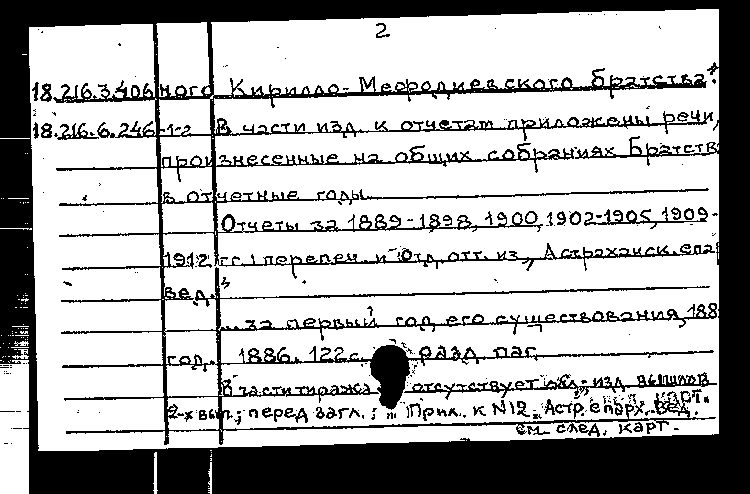 2
18.216.3.406 ного Кирилло-Мефодиевского братства."
18.216.6.246-1-2 В части изд. к отчетам приложены речи,
произнесенные на общих собраниях Братств
в отчетные годы.
Отчеты за 1889-1898, 1900, 1902-1905, 1909-
1912 гг. перепеч. и отд. отт. из „Астраханск. епар
вед."
... за первый год его существования, 188
год. 1886. 122 с. разд. паг.
В части тиража отсутствует обл.; изд. вышло в
2-х вып.; перед загл.: Прил. к N12 Астр. епарх. вед.
см. след. карт.